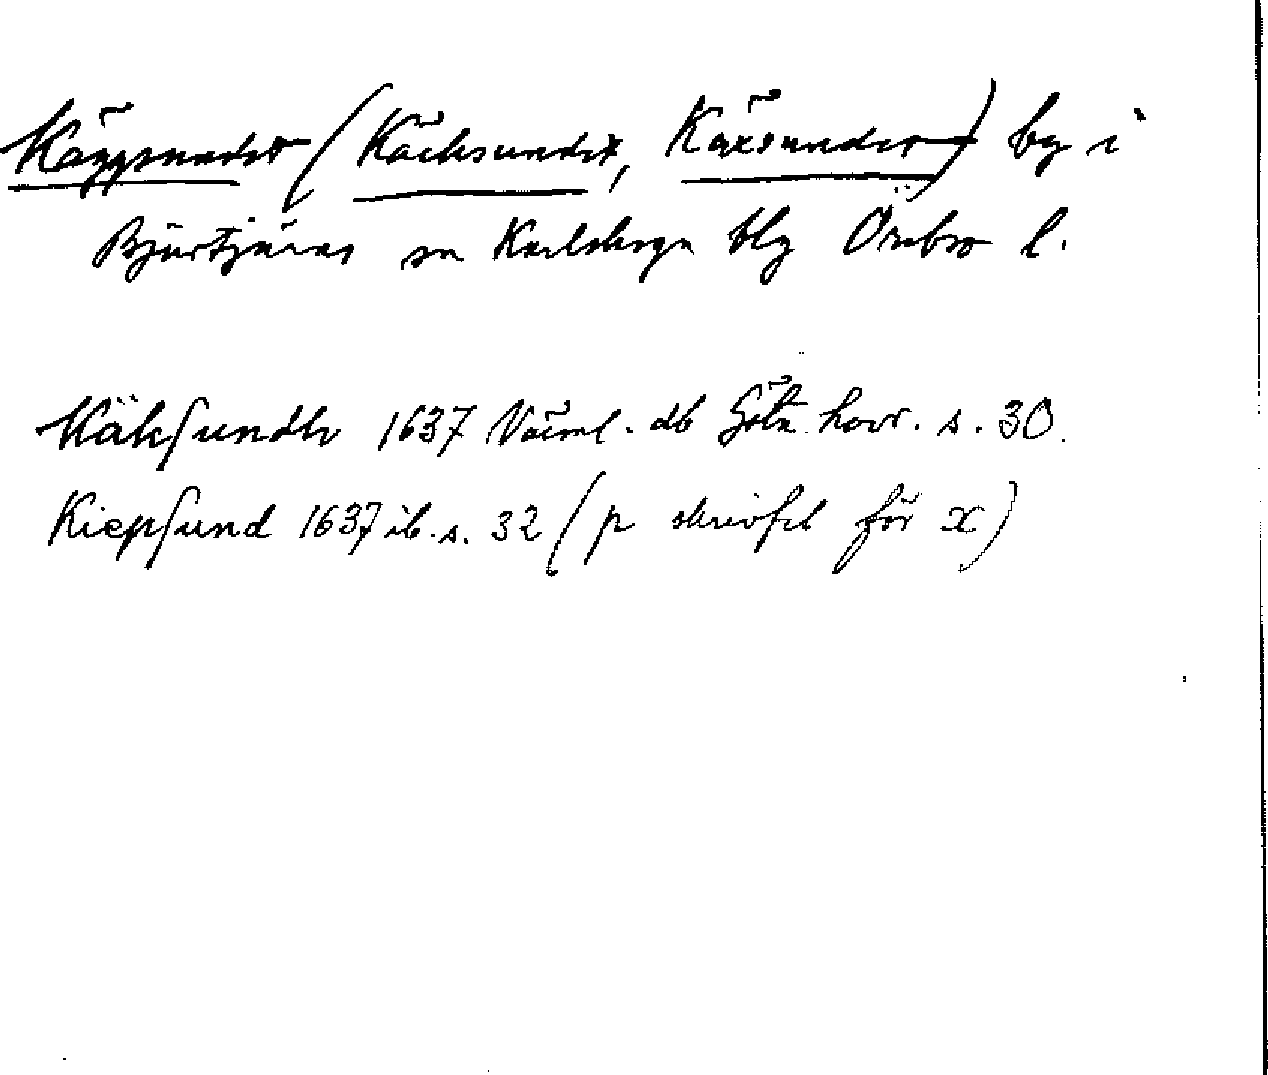 Käppsundet (Käcksundet, Käxsundet) by i
Bjurtjärns sn Karlskoga blg Örebro l.
Käksundh 1637 Värml. db Göta hovr. s. 30.
Kiepsund 1637 ib. s. 32 (p skrivfel för x)